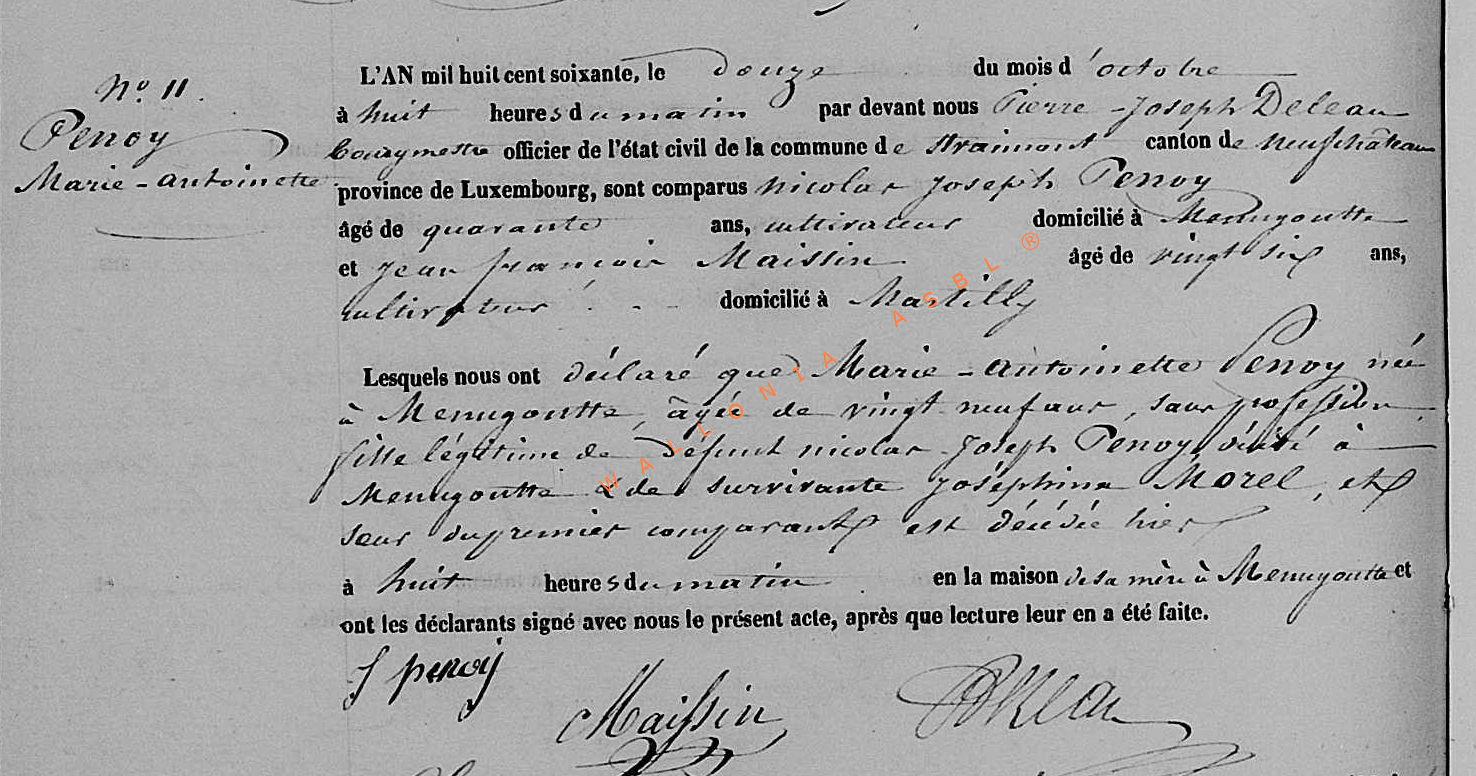 N° 11.
Penoy
Marie-Antoinette
L'AN mil huit cent soixante, le douze du mois d'octobre
à huit heures du matin par devant nous Pierre-Joseph Deleau
bourgmestre officier de l'état civil de la commune de Straimont canton de neufchâteau
province de Luxembourg, sont comparus nicolas joseph Penoy
âgé de quarante ans, cultivateur domicilié à Menugoutte
et jean françois Maissin âgé de vingt six ans,
cultivateur domicilié à Martilly
Lesquels nous ont déclaré que Marie-antoinette Penoy née
à Menugoutte, âgée de vingt neuf ans, sans profession,
fille légitime de défunt nicolas joseph Penoy, à
Menugoutte & de survivante joséphine Morel, et
sœur du premier comparant est décédée hier
à huit heures du matin en la maison de sa mère à Menugoutte et
ont les déclarants signé avec nous le présent acte, après que lecture leur en a été faite.
J penoy
Maissin
Deleau
WALLONIA ASBL ®